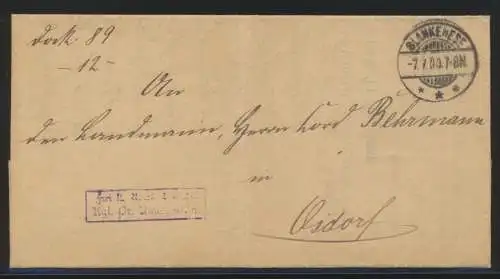 Jock. 89
-12-
BLANKENESE
-7.7.00.7-8N
An
den Landmann, Herrn Cord Behrmann
in
Frei lt.
Kgl. Pr.
Osdorf